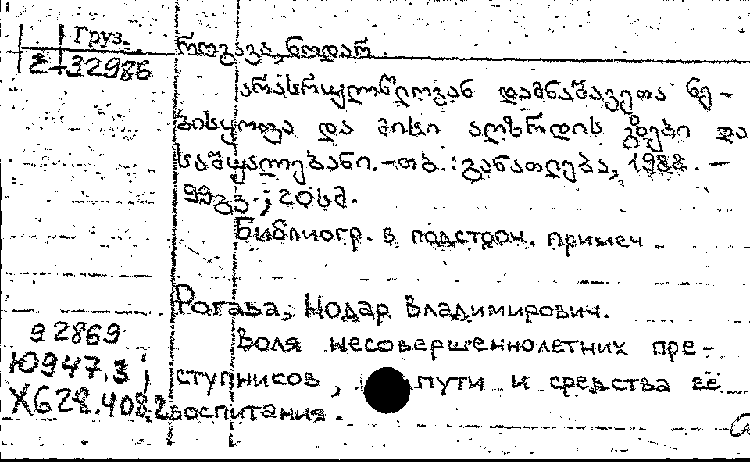 Груз.
2-32986
როგავა, ნოდარ.
არასრულწლოვან დამნაშავეთა ნე-
ბისყოფა და მისი აღზრდის გზები და
საშუალებანი. — თბ. : განათლება, 1988. —
99 გვ. ; 20 სმ.
Библиогр. в подстроч. примеч.
Рогава, Нодар Владимирович.
Воля несовершеннолетних пре-
ступников, пути и средства её
воспитания.
92869
Ю947.3 ;
Х628.408.2